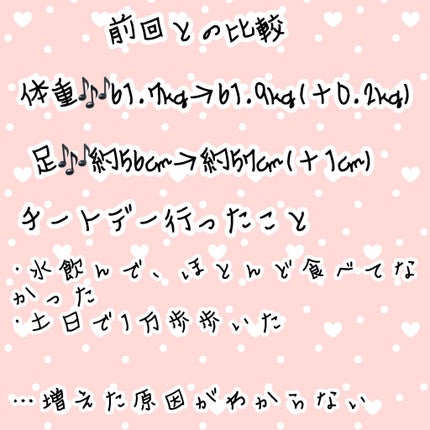 前回との比較
体重🎶61.7kg→61.9kg(+0.2kg)
足🎶約56cm→約57cm(+1cm)
チートデー行ったこと
・水飲んで、ほとんど食べてな
かった
・土日で1万歩歩いた
…増えた原因がわからない